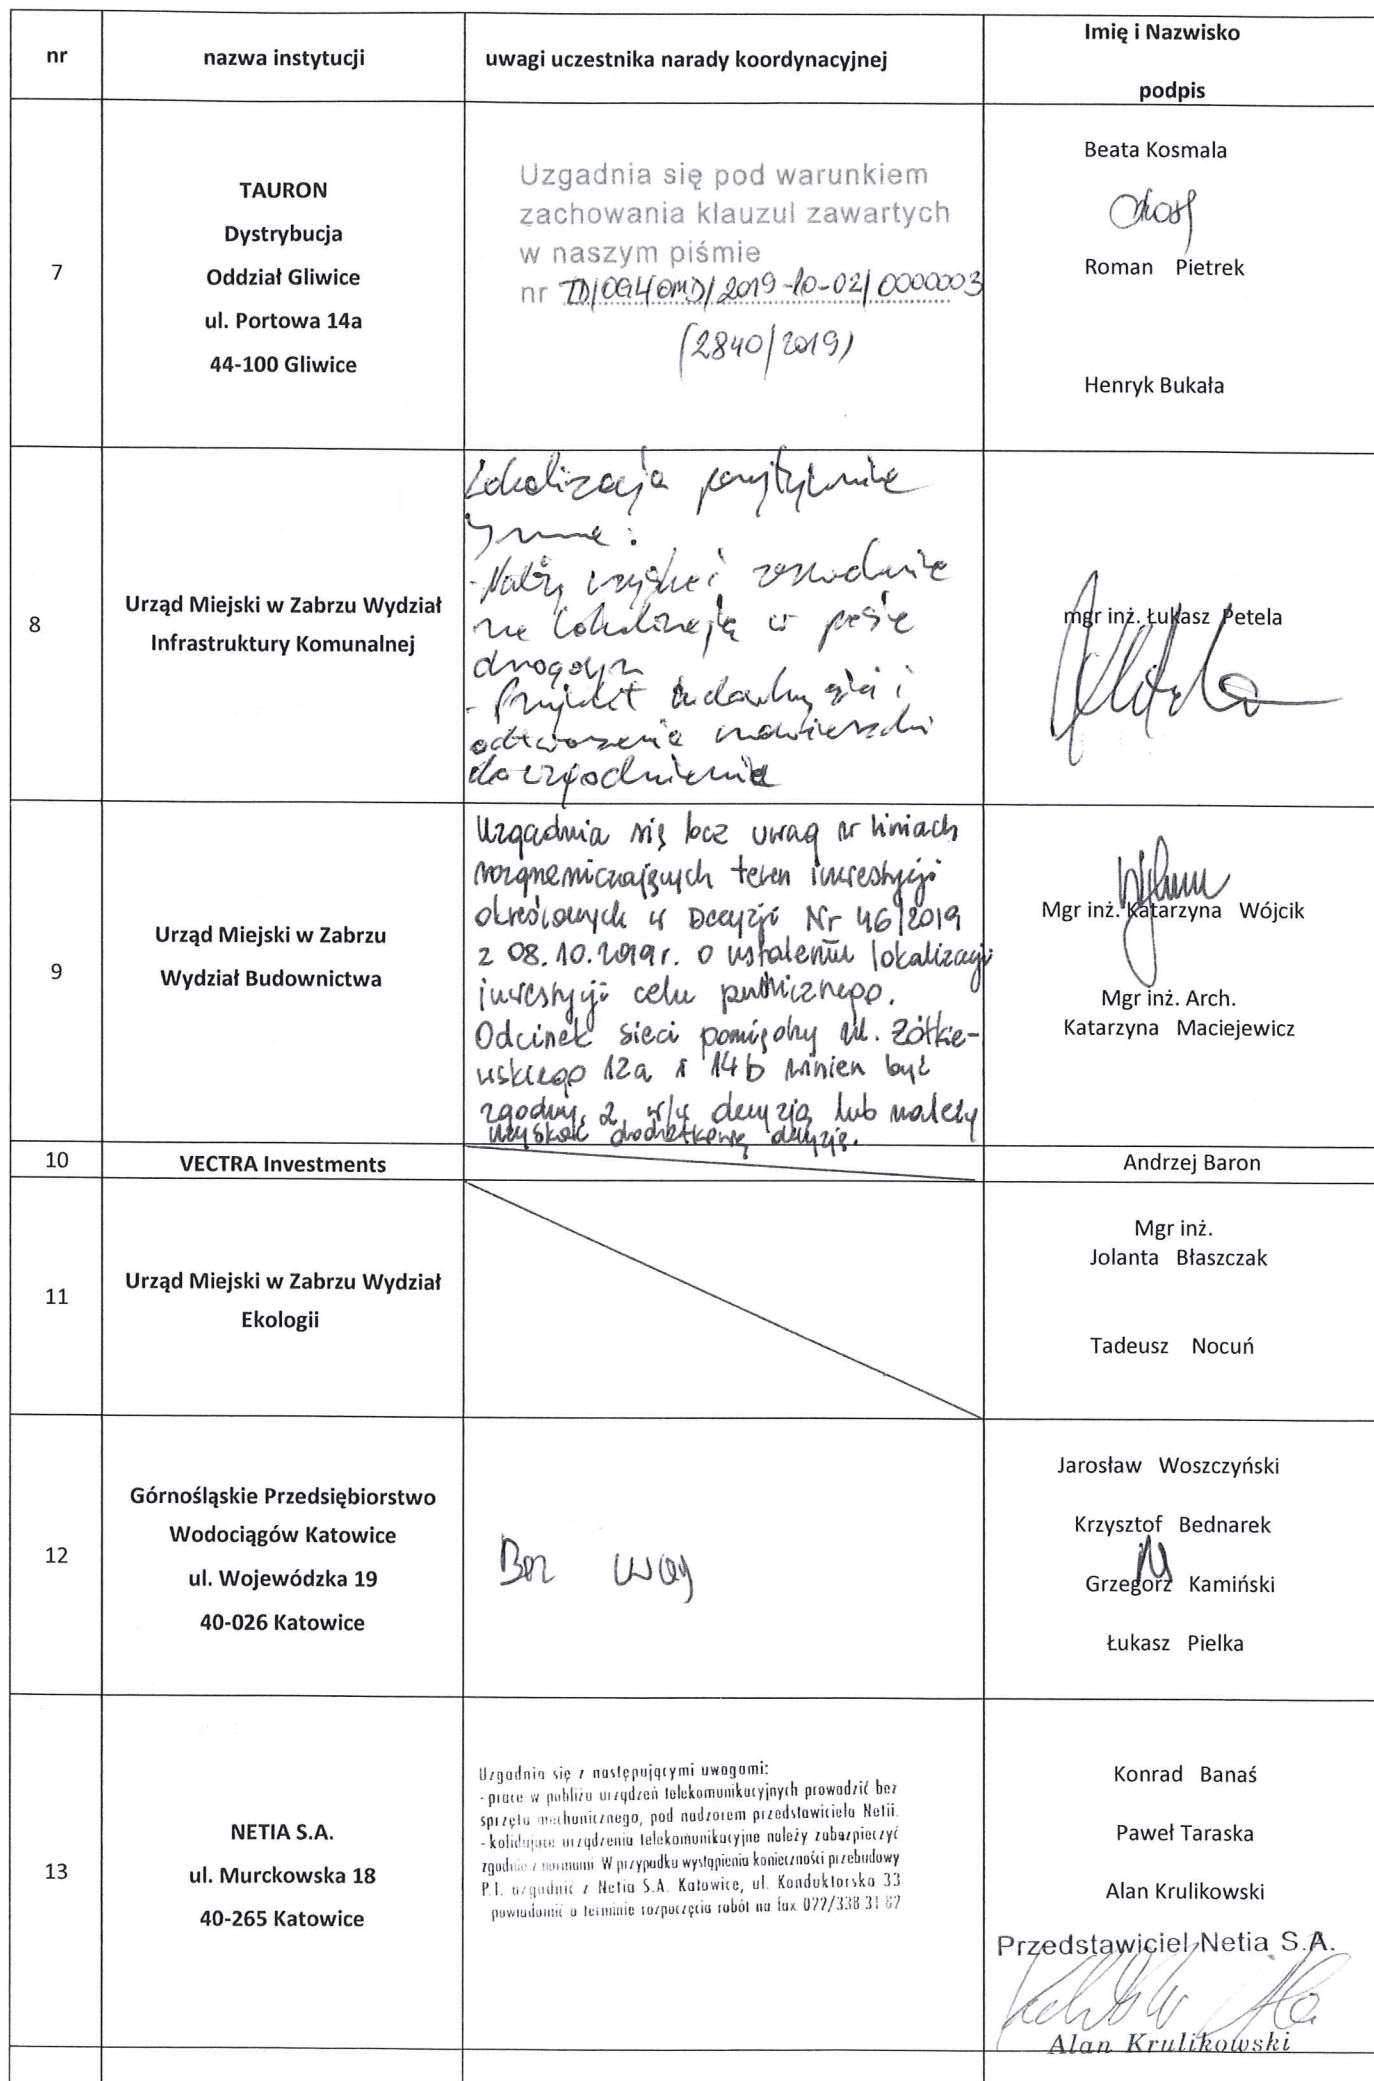 nr
nazwa instytucji
uwagi uczestnika narady koordynacyjnej
Imię i Nazwisko
podpis
7
TAURON
Dystrybucja
Oddział Gliwice
ul. Portowa 14a
44-100 Gliwice
Uzgadnia się pod warunkiem
zachowania klauzul zawartych
w naszym piśmie
nr TD/OGL/OMD/2019-10-02/0000003
(2840/2019)
Beata Kosmala
Roman Pietrek
Henryk Bukała
8
Urząd Miejski w Zabrzu Wydział
Infrastruktury Komunalnej
Lokalizacja pozytywnie
- Należy uzyskać zezwolenie
na lokalizację w pasie
drogowym
- Projekt budowlany sieci i
odtworzenia nawierzchni
do uzgodnienia
mgr inż. Łukasz Petela
9
Urząd Miejski w Zabrzu
Wydział Budownictwa
Uzgadnia się bez uwag w liniach
rozgraniczających teren inwestycji
określonych w Decyzji Nr 46/2019
z 08.10.2019r. o ustaleniu lokalizacji
inwestycji celu publicznego.
Odcinek sieci pomiędzy ul. Żółkie-
wskiego 12a i 14b winien być
zgodny z w/w decyzją lub należy
uzyskać dodatkową decyzję.
Mgr inż. Katarzyna Wójcik
Mgr inż. Arch.
Katarzyna Maciejewicz
10
VECTRA Investments
Andrzej Baron
11
Urząd Miejski w Zabrzu Wydział
Ekologii
Mgr inż.
Jolanta Błaszczak
Tadeusz Nocuń
12
Górnośląskie Przedsiębiorstwo
Wodociągów Katowice
ul. Wojewódzka 19
40-026 Katowice
Bez uwag
Jarosław Woszczyński
Krzysztof Bednarek
Grzegorz Kamiński
Łukasz Pielka
13
NETIA S.A.
ul. Murckowska 18
40-265 Katowice
Uzgadnia się z następującymi uwagami:
- prace w pobliżu urządzeń telekomunikacyjnych prowadzić bez
sprzętu mechanicznego, pod nadzorem przedstawiciela Netii.
- kolidujące urządzenia telekomunikacyjne należy zabezpieczyć
zgodnie z normami W przypadku wystąpienia konieczności przebudowy
P.T. uzgodnić z Netia S.A. Katowice, ul. Konduktorska 33
powiadomić o terminie rozpoczęcia robót na fax 022/338 31 62
Konrad Banaś
Paweł Taraska
Alan Krulikowski
Przedstawiciel Netia S.A.
Alan Krulikowski